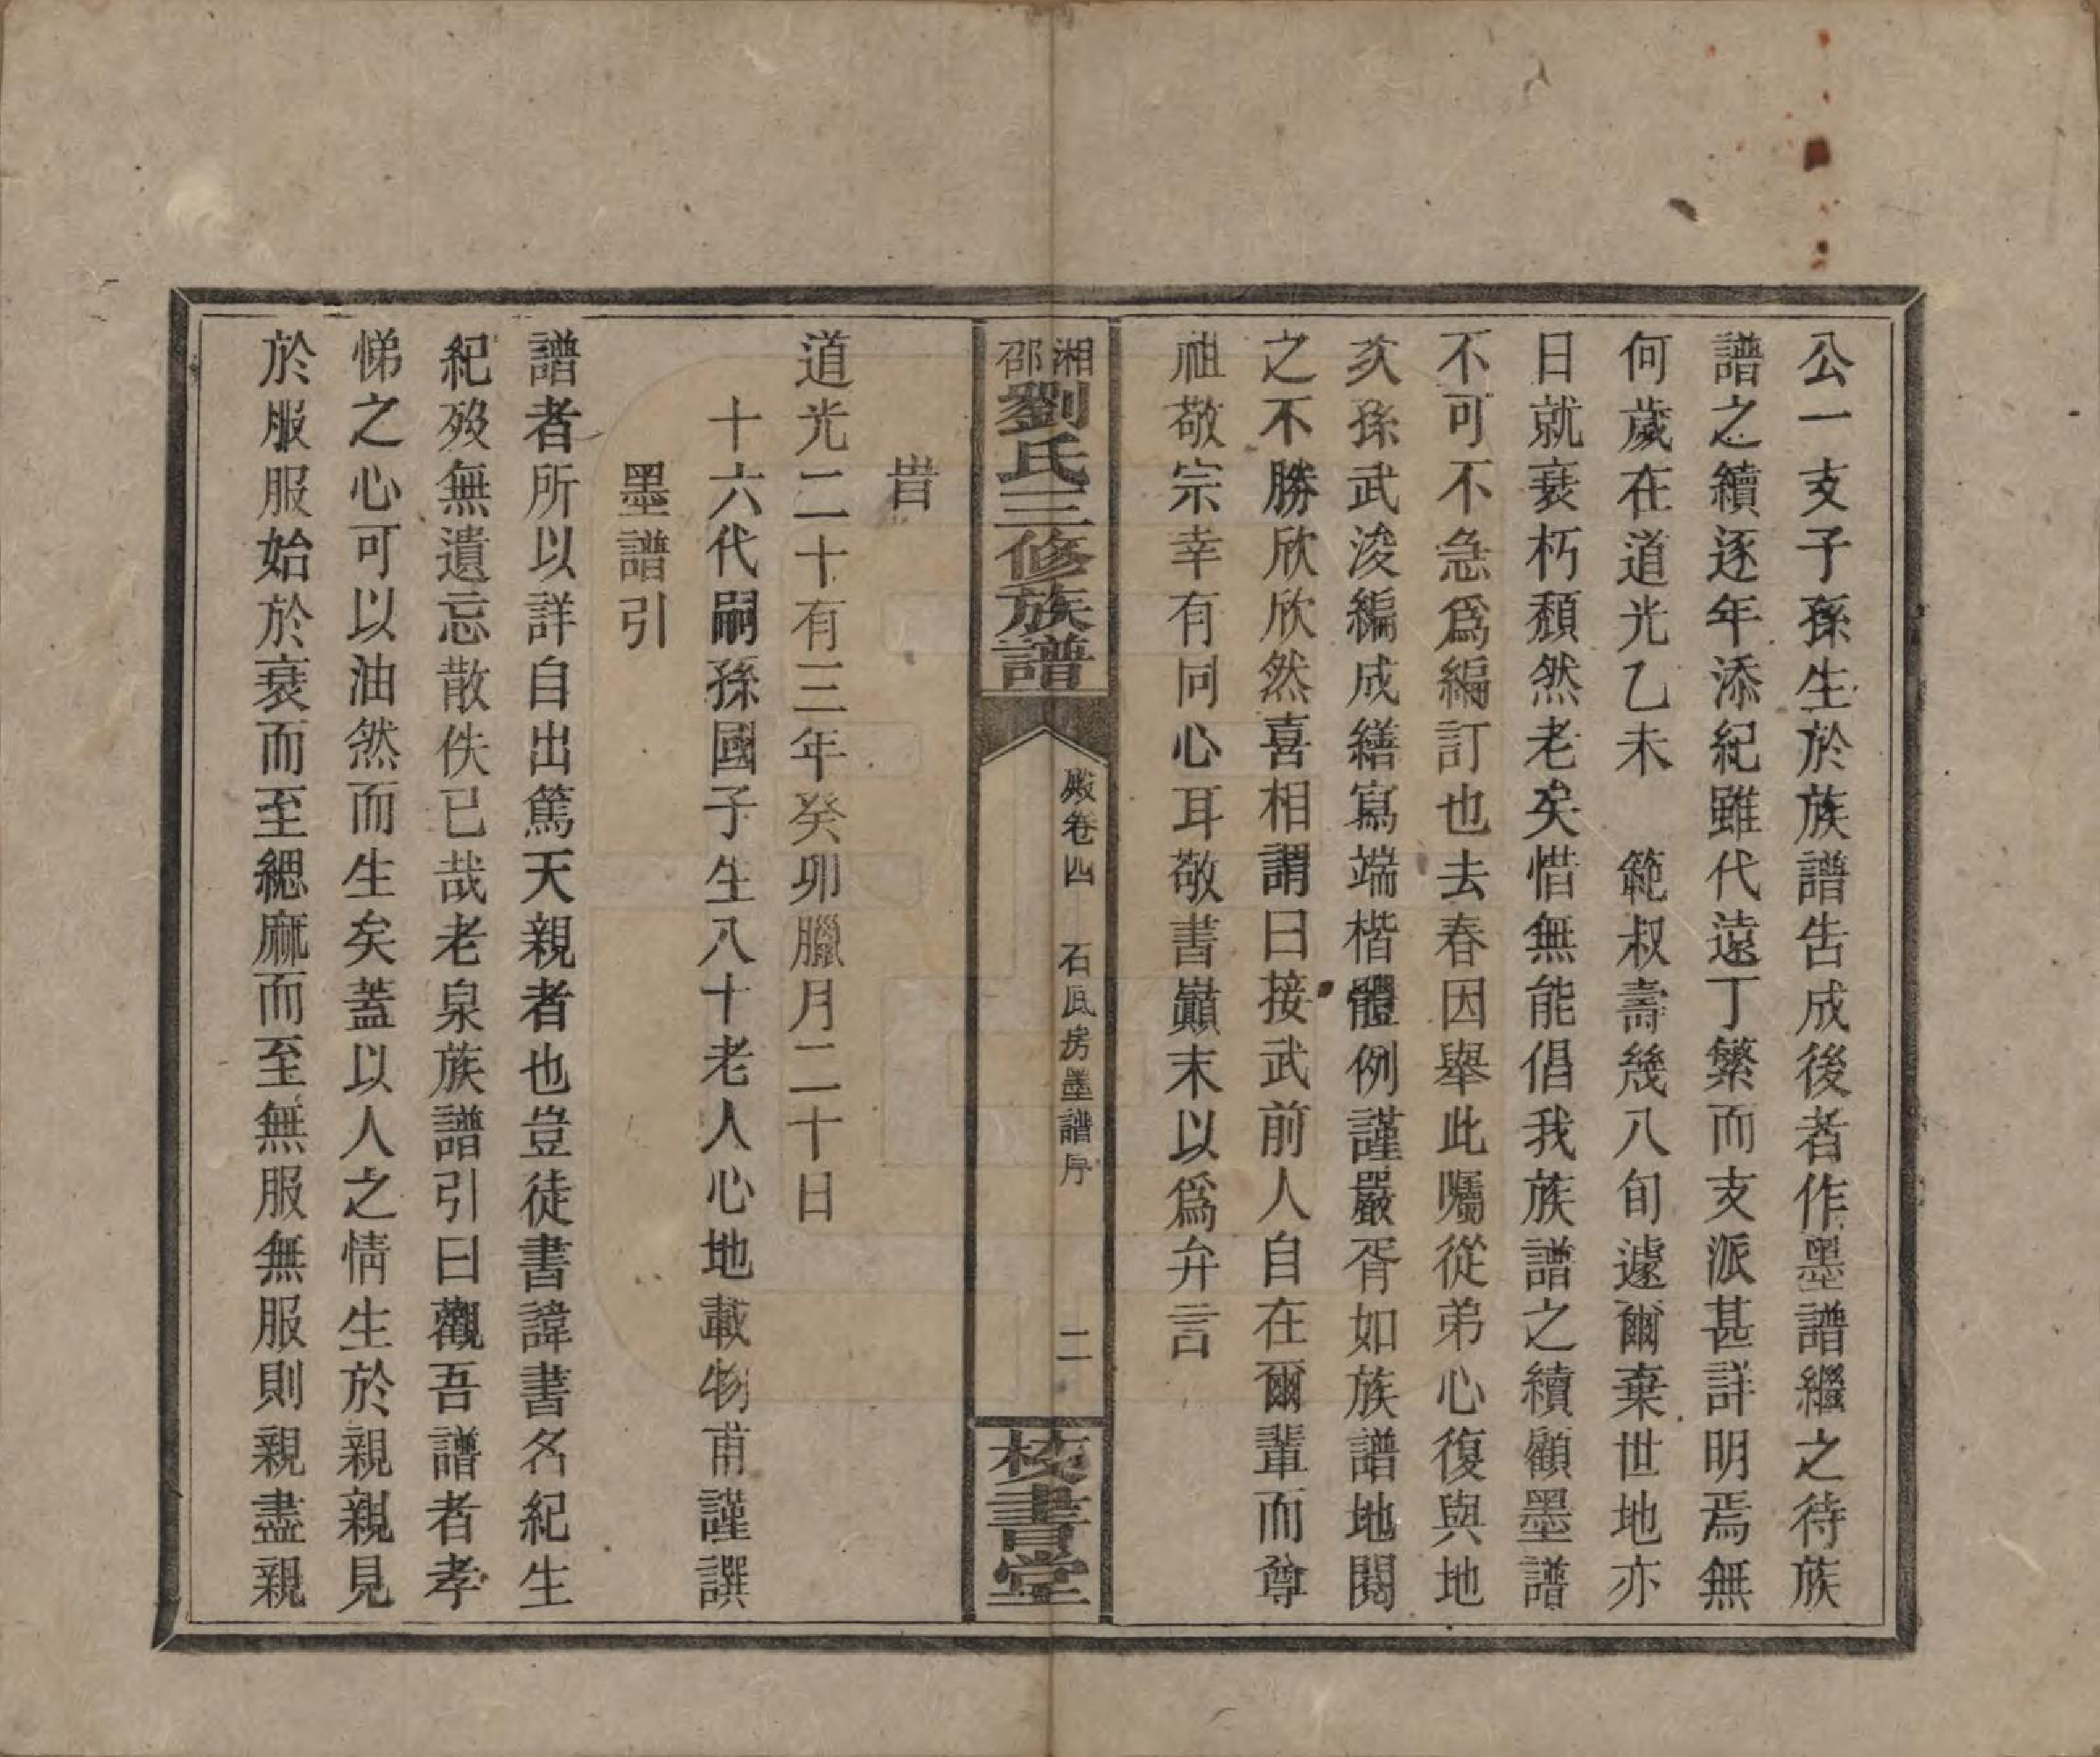 公一支子孫生於族譜告成後者作墨譜繼之待族
譜之續逐年添紀雖代遠丁繁而支派甚詳明焉無
何歲在道光乙未　範叔壽幾八旬遽爾棄世地亦
日就衰朽頹然老矣惜無能倡我族譜之續顧墨譜
不可不急爲編訂也去春因舉此囑從弟心復與地
亥孫武浚編成繕寫端楷體例謹嚴胥如族譜地閱
之不勝欣欣然喜相謂曰接武前人自在爾輩而尊
祖敬宗幸有同心耳敬書巔末以爲弁言
湘邵劉氏三修族譜
殿卷四　石瓜房墨譜序　二
校書堂
旹
道光二十有三年癸卯臘月二十日
十六代嗣孫國子生八十老人心地載物甫謹譔
墨譜引
譜者所以詳自出篤天親者也豈徒書諱書名紀生
紀歿無遺忘散佚已哉老泉族譜引曰觀吾譜者孝
悌之心可以油然而生矣蓋以人之情生於親親見
於服服始於衰而至緦麻而至無服無服則親盡親